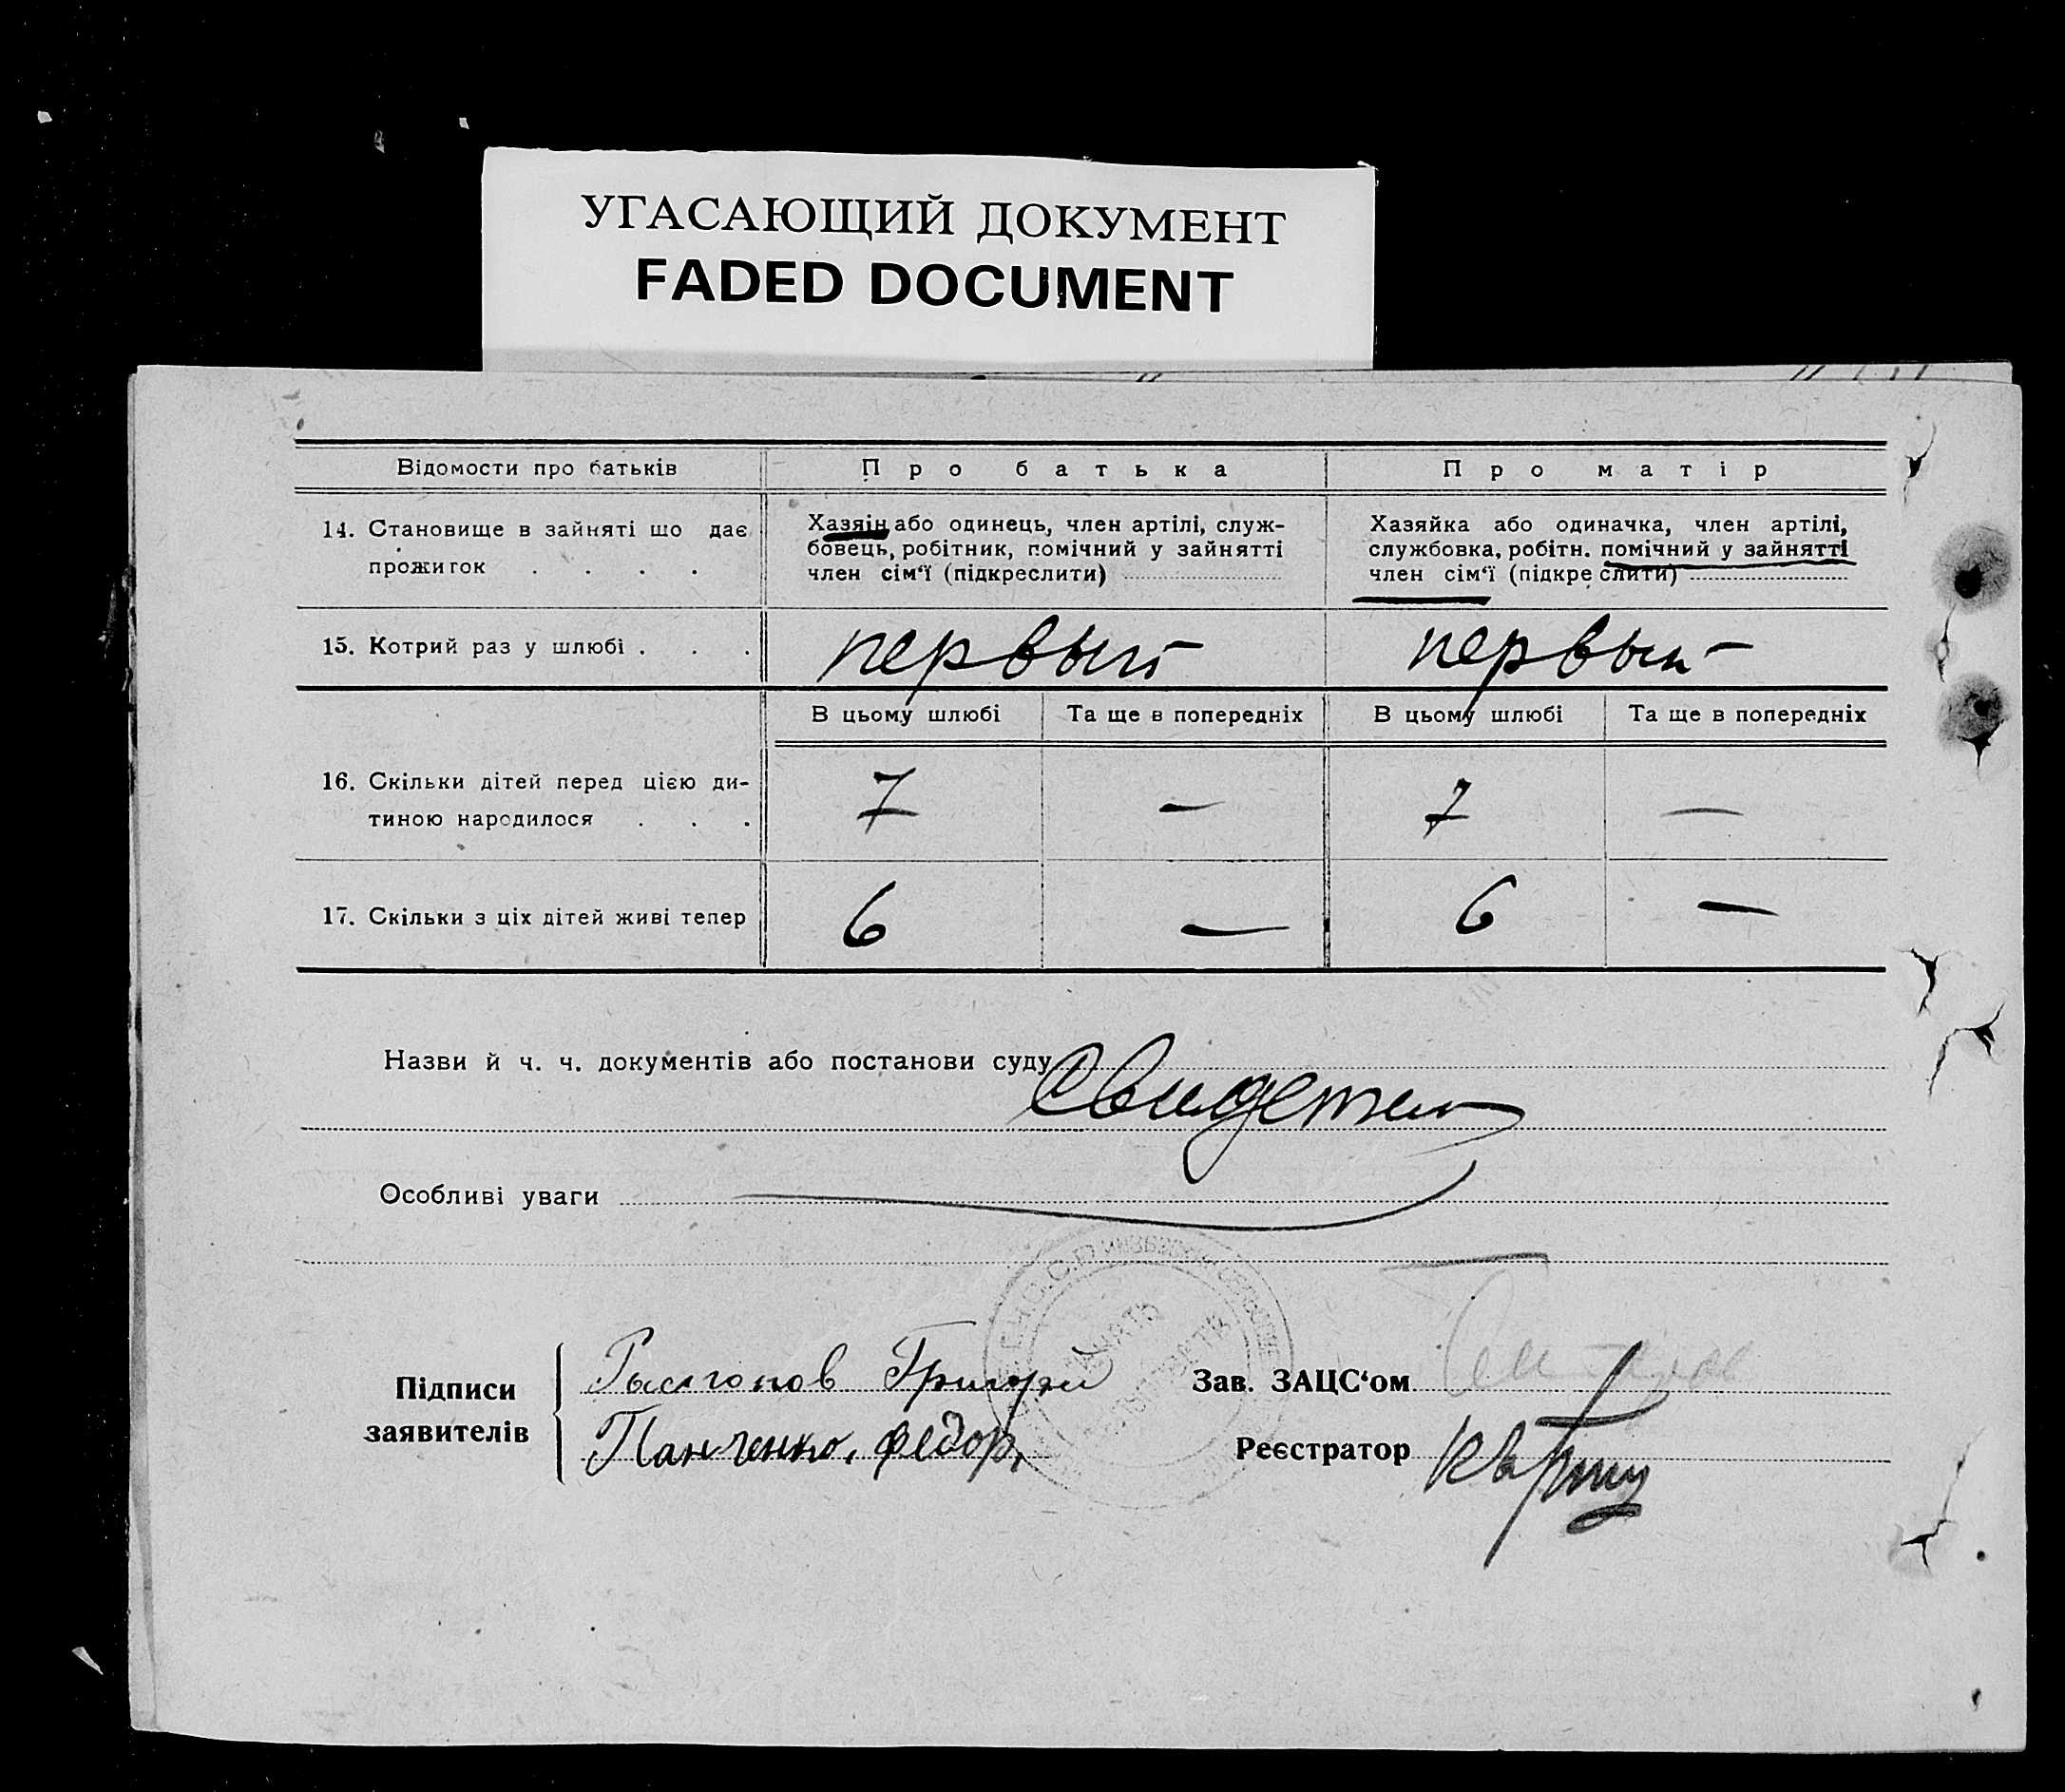 УГАСАЮЩИЙ ДОКУМЕНТ
FADED DOCUMENT
Відомости про батьків
Про батька
Про матір
14. Становище в зайняті що дає
прожиток . . . .
Хазяін або одинець, член артілі, служ-
бовець, робітник, помічний у зайнятті
член сім‘ї (підкреслити)
Хазяйка або одиначка, член артілі,
службовка, робітн. помічний у зайнятті
член сім‘ї (підкреслити)
15. Котрий раз у шлюбі . . .
первый
первый
В цьому шлюбі
Та ще в попередніх
В цьому шлюбі
Та ще в попередніх
16. Скільки дітей перед цією ди-
тиною народилося . . .
7
—
7
—
17. Скільки з ціх дітей живі тепер
6
—
6
—
Назви й ч. ч. документів або постанови суду
Свидетели
Особливі уваги
Підписи
заявителів
Григорий
Панченко, Федор,
Зав. ЗАЦС‘ом
Реєстратор